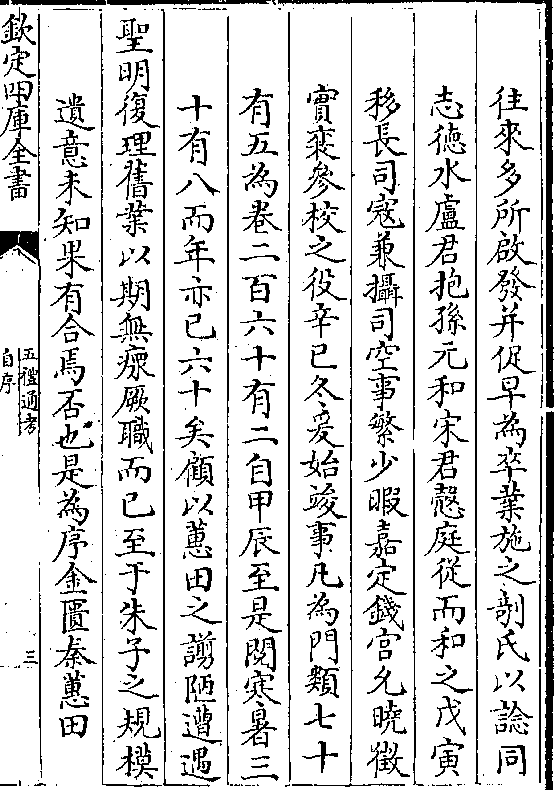 往來多所啟發并促早為卒業施之剞氏以諗同
志徳水盧君抱孫元和宋君慤庭從而和之戊寅
移長司寇兼攝司空事繁少暇嘉定錢宫允曉徵
實襄參校之役辛巳冬爰始竣事凡為門類七十
有五為卷二百六十有二自甲辰至是閱寒暑三
十有八而年亦已六十矣顧以蕙田之謭陋遭遇
聖明復理舊業以期無瘝厥職而已至于朱子之規模
遺意未知果有合焉否也是為序金匱秦蕙田
欽定四庫全書
五禮通考
自序
三